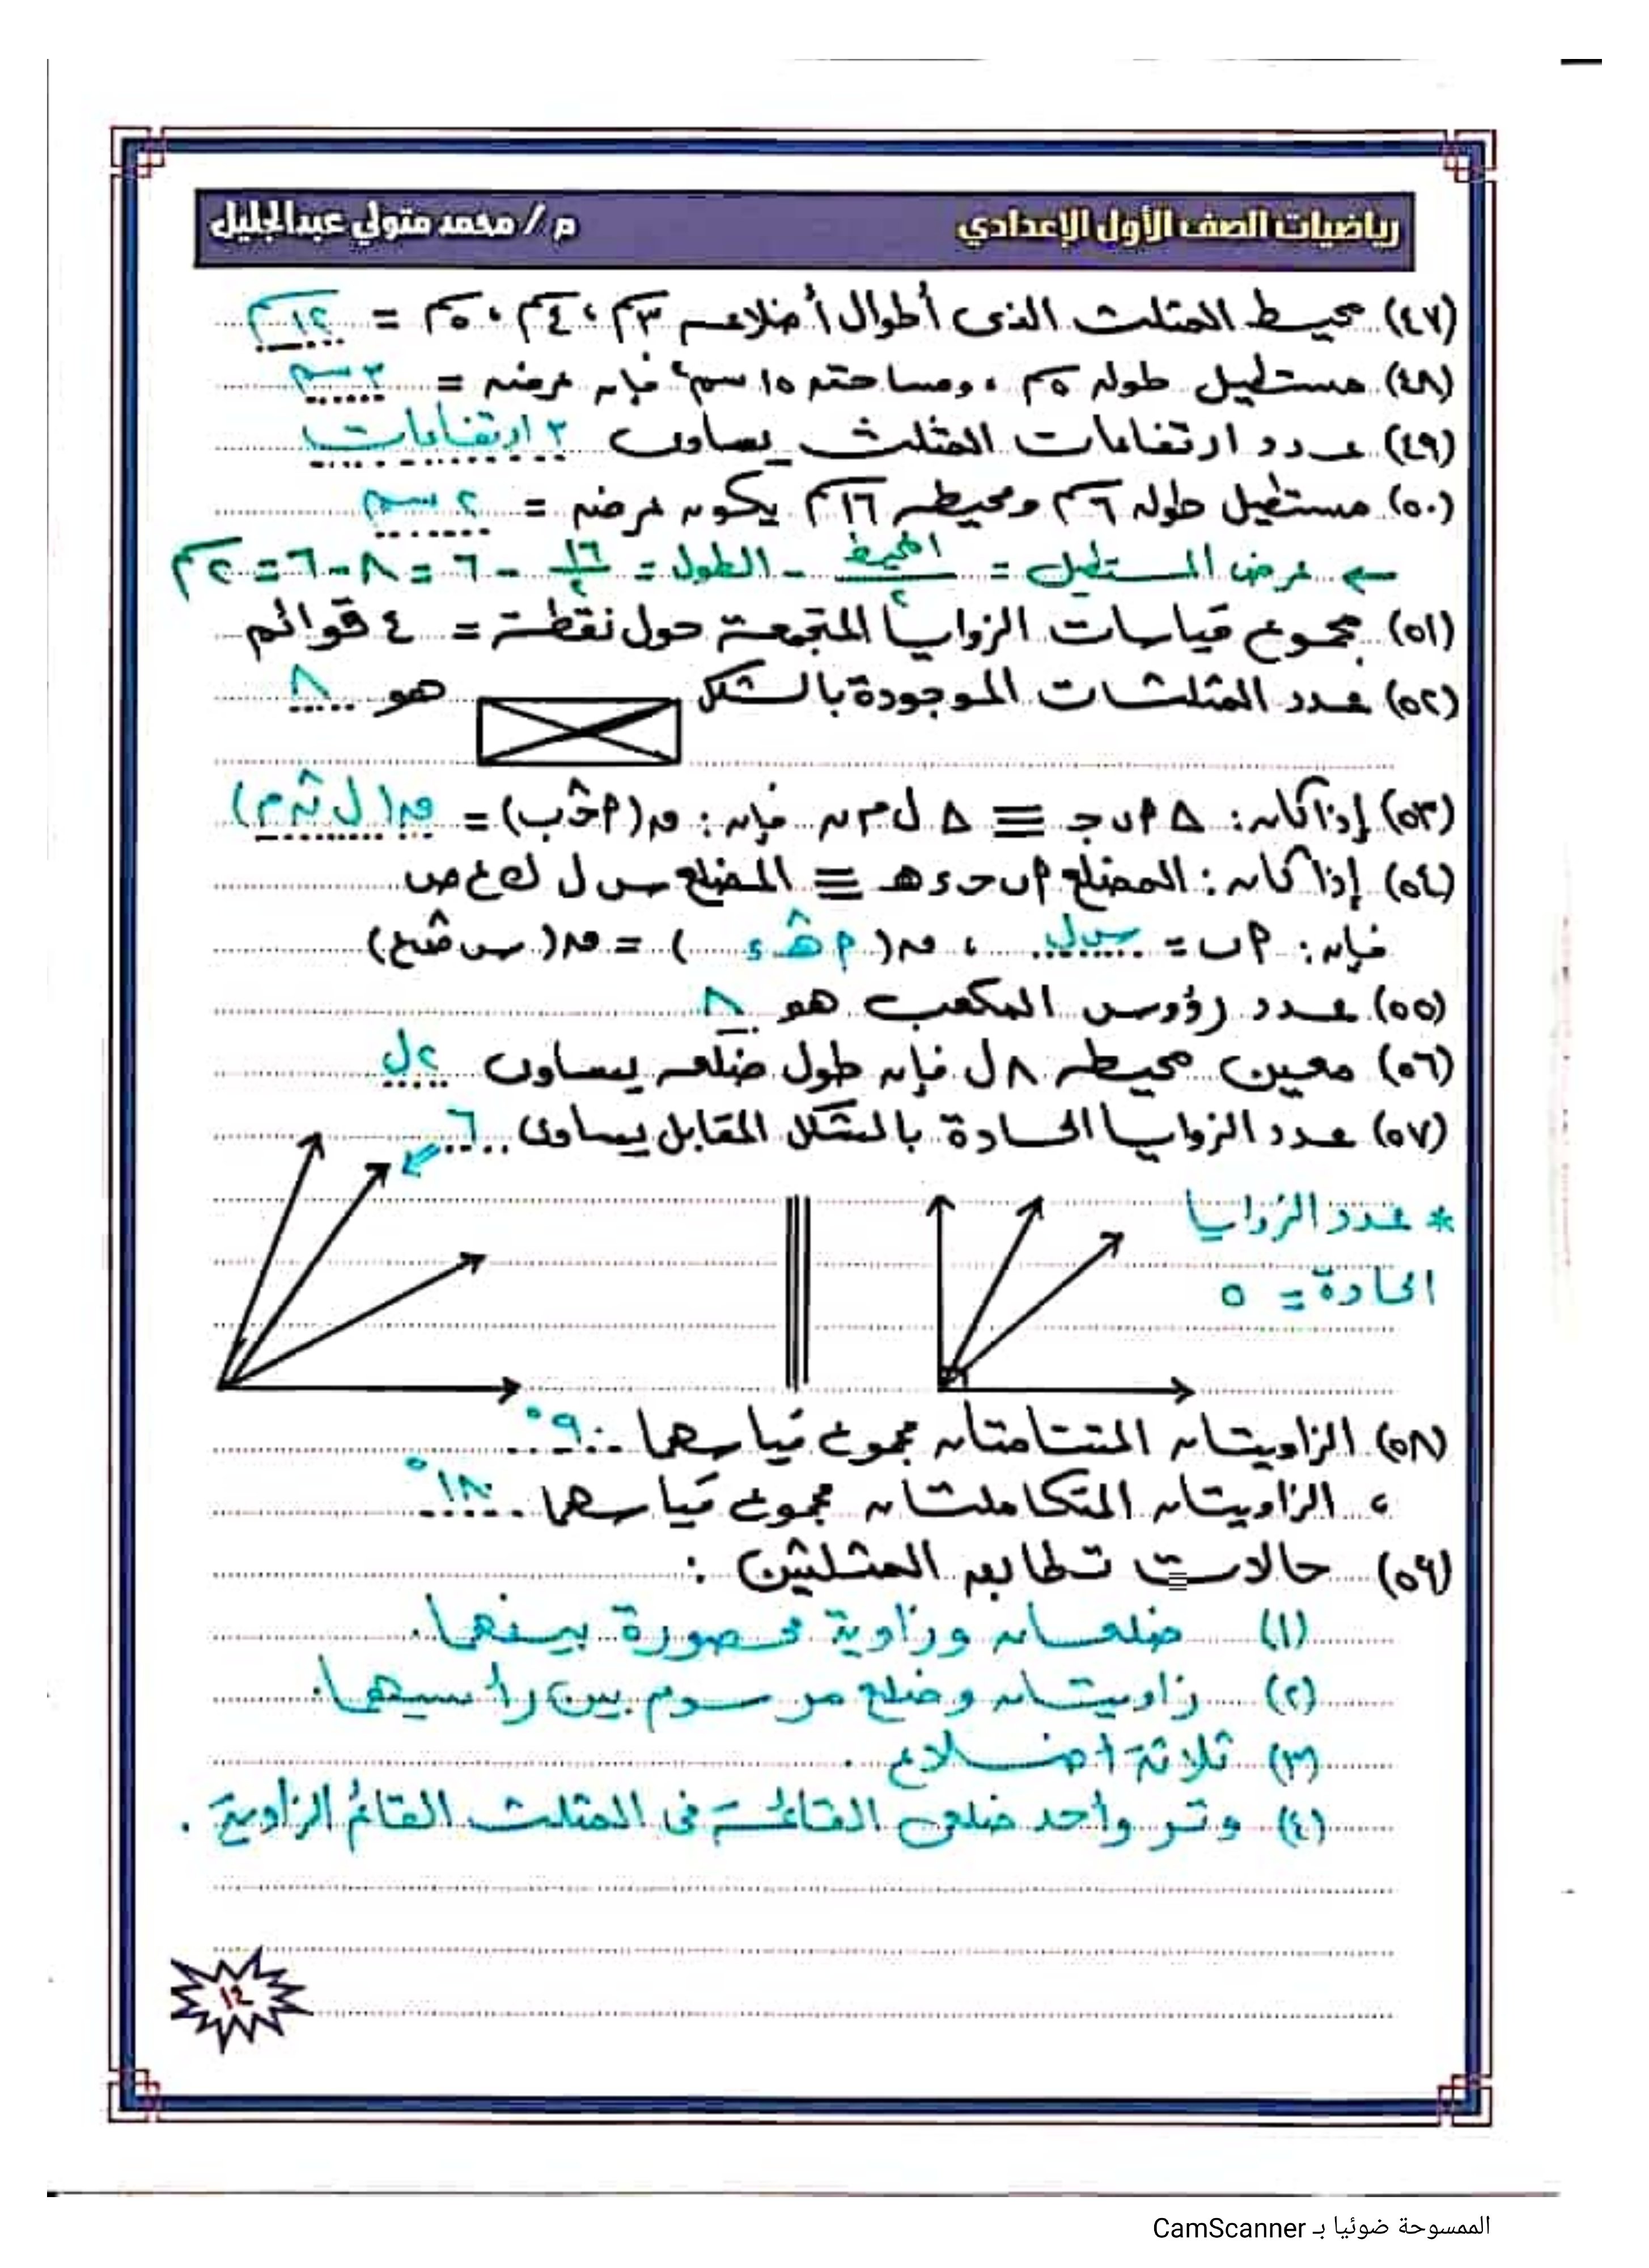 رياضيات الصف الأول الإعدادي
م / محمد متولي عبدالجليل
(٤٧) محيط المثلث الذى أطوال أضلاعه ٣سم ، ٤سم ، ٥سم = ١٢سم
(٤٨) مستطيل طوله ٥سم ، ومساحته ١٥ سم٢ فإن عرضه = ٣ سم
(٤٩) عدد ارتفاعات المثلث يساوى ٣ ارتفاعات
(٥٠) مستطيل طوله ٦سم ومحيطه ١٦سم يكون عرضه = ٢ سم
عرض المستطيل = المحيط/٢ - الطول = ١٦/٢ - ٦ = ٨ - ٦ = ٢سم
(٥١) مجموع قياسات الزوايا المتجمعة حول نقطة = ٤ قوائم
(٥٢) عدد المثلثات الموجودة بالشكل هو ٨
(٥٣) إذا كان : △ أ ب ج ≡ △ ل م ن فإن : ق(أ ج ب) = ق( ل ن م )
(٥٤) إذا كان : المضلع أ ب ح ء هـ ≡ المضلع س ل ك ع ص
فإن : أ ب = س ل ، ق( أ هـ ء ) = ق( س ص ع )
(٥٥) عدد رؤوس المكعب هو ٨
(٥٦) معين محيطه ٨ ل فإن طول ضلعه يساوى ٢ل
(٥٧) عدد الزوايا الحادة بالشكل المقابل يساوى ٦
* عدد الزوايا
الحادة = ٥
(٥٨) الزاويتان المتتامتان مجموع قياسهما ٩٠°
، الزاويتان المتكاملتان مجموع قياسهما ١٨٠°
(٥٩) حالات تطابق المثلثين :
(١) ضلعان وزاوية محصورة بينهما .
(٢) زاويتان وضلع مرسوم بين رأسيهما .
(٣) ثلاثة أضلاع .
(٤) وتر وأحد ضلعى القائمة فى المثلث القائم الزاوية .
١٢
الممسوحة ضوئيا بـ CamScanner